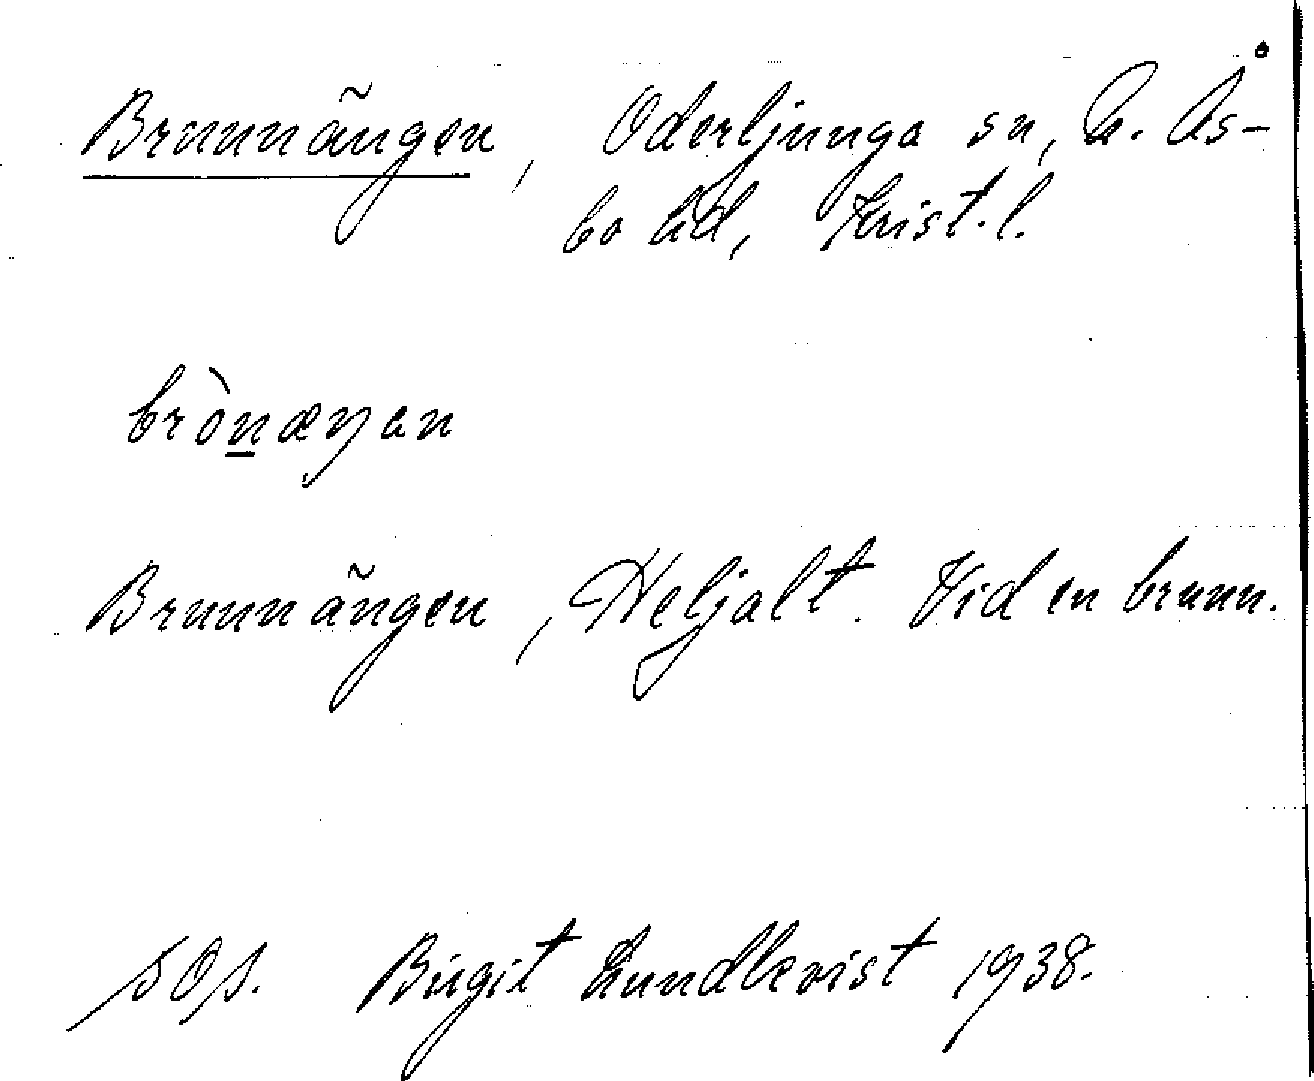 Brunnängen, Oderljunga sn, N. Ås-
bo hd, Krist. l.
bròn̲æŋen
Brunnängen, Heljalt. Vid en brunn.
Birgit Lundkvist 1938.